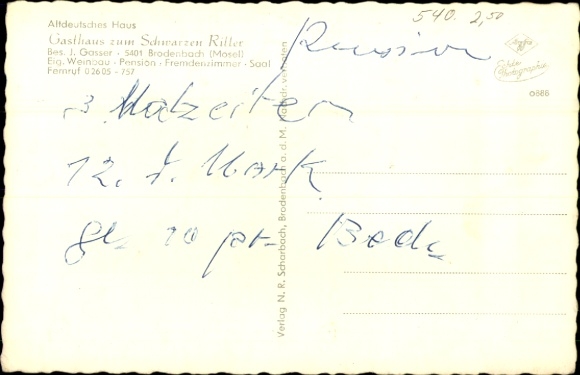 540. 2,50
Altdeutsches Haus
Gasthaus zum Schwarzen Ritter
Bes. J. Gasser - 5401 Brodenbach (Mosel)
Eig. Weinbau - Pension - Fremdenzimmer - Saal
Fernruf 02605 - 757
Agfa
Echte Photographie
0688
Pension
3 Malzeiten
12. Mark
10 Bad
Verlag N. R. Scharbach, Brodenbach a. d. M. Nachdr. verboten